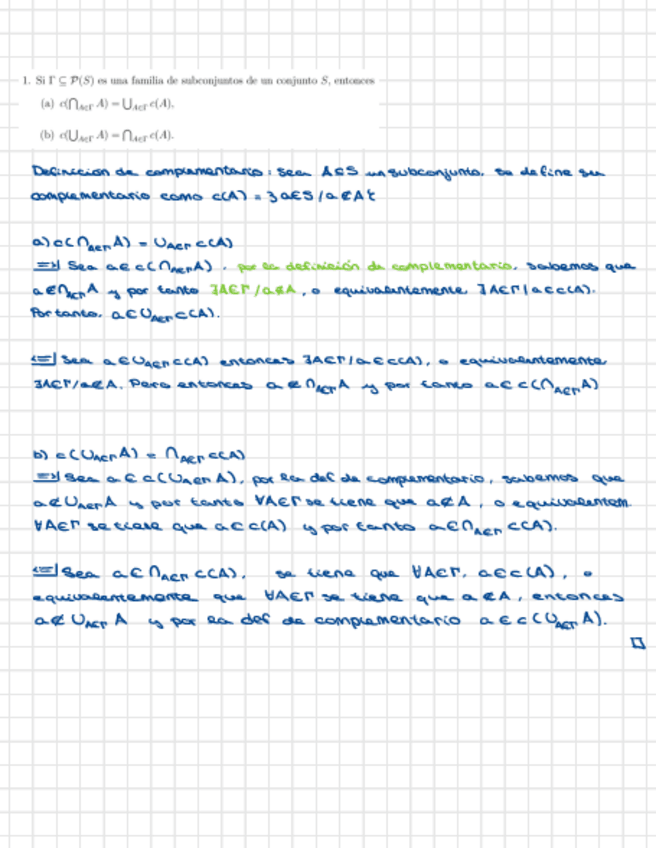 1. Si Γ ⊆ P(S) es una familia de subconjuntos de un conjunto S, entonces
(a) c(⋂_{A∈Γ} A) = ⋃_{A∈Γ} c(A).
(b) c(⋃_{A∈Γ} A) = ⋂_{A∈Γ} c(A).
Definición de complementario: sea A⊆S un subconjunto. se define su
complementario como c(A) = {a∈S / a∉A}
a) c(⋂_{A∈Γ} A) = ⋃_{A∈Γ} c(A)
⇒| Sea a∈c(⋂_{A∈Γ} A), por la definición de complementario, sabemos que
a∉⋂_{A∈Γ} A y por tanto ∃A∈Γ/a∉A, o equivalentemente ∃A∈Γ/a∈c(A).
Por tanto, a∈⋃_{A∈Γ} c(A).
⇐| Sea a∈⋃_{A∈Γ} c(A) entonces ∃A∈Γ/a∈c(A), o equivalentemente
∃A∈Γ/a∉A. Pero entonces a∉⋂_{A∈Γ} A y por tanto a∈c(⋂_{A∈Γ} A)
b) c(⋃_{A∈Γ} A) = ⋂_{A∈Γ} c(A)
⇒| Sea a∈c(⋃_{A∈Γ} A), por la def de complementario, sabemos que
a∉⋃_{A∈Γ} A y por tanto ∀A∈Γ se tiene que a∉A, o equivalentem.
∀A∈Γ se tiene que a∈c(A) y por tanto a∈⋂_{A∈Γ} c(A).
⇐| Sea a∈⋂_{A∈Γ} c(A), se tiene que ∀A∈Γ, a∈c(A), o
equivalentemente que ∀A∈Γ se tiene que a∉A, entonces
a∉⋃_{A∈Γ} A y por la def de complementario a∈c(⋃_{A∈Γ} A).
□